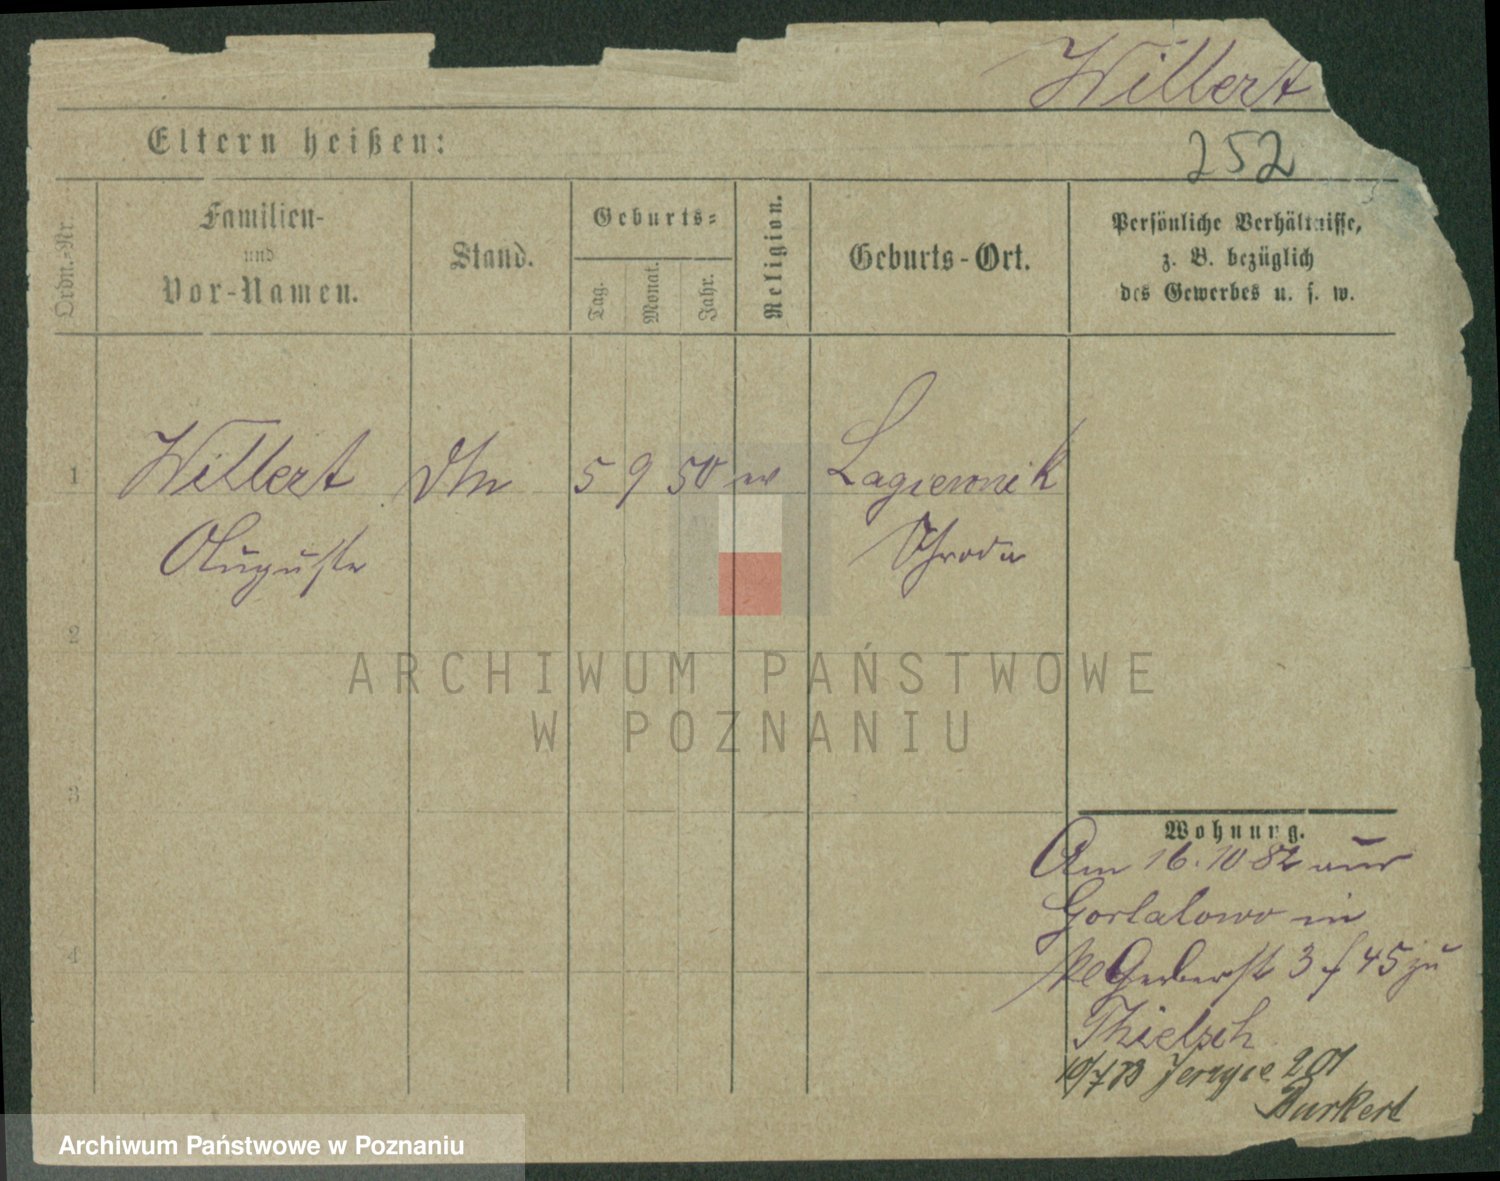 Willert
Eltern heißen:
252
Ordn.-Nr.
Familien-
und
Vor-Namen.
Stand.
Geburts-
Tag.
Monat.
Jahr.
Religion.
Geburts-Ort.
Persönliche Verhältnisse,
z. B. bezüglich
des Gewerbes u. s. w.
1 Willert 5 9 50 Lagiewnik
Auguste Schroda
2
ARCHIWUM PAŃSTWOWE
W POZNANIU
3
Wohnung.
Am 16.10 82 aus
Gortatowo in
Gerberst 3 f 45 zu
4
Thielsch
10/7 83 Jerzyce 201
Burkert
Archiwum Państwowe w Poznaniu